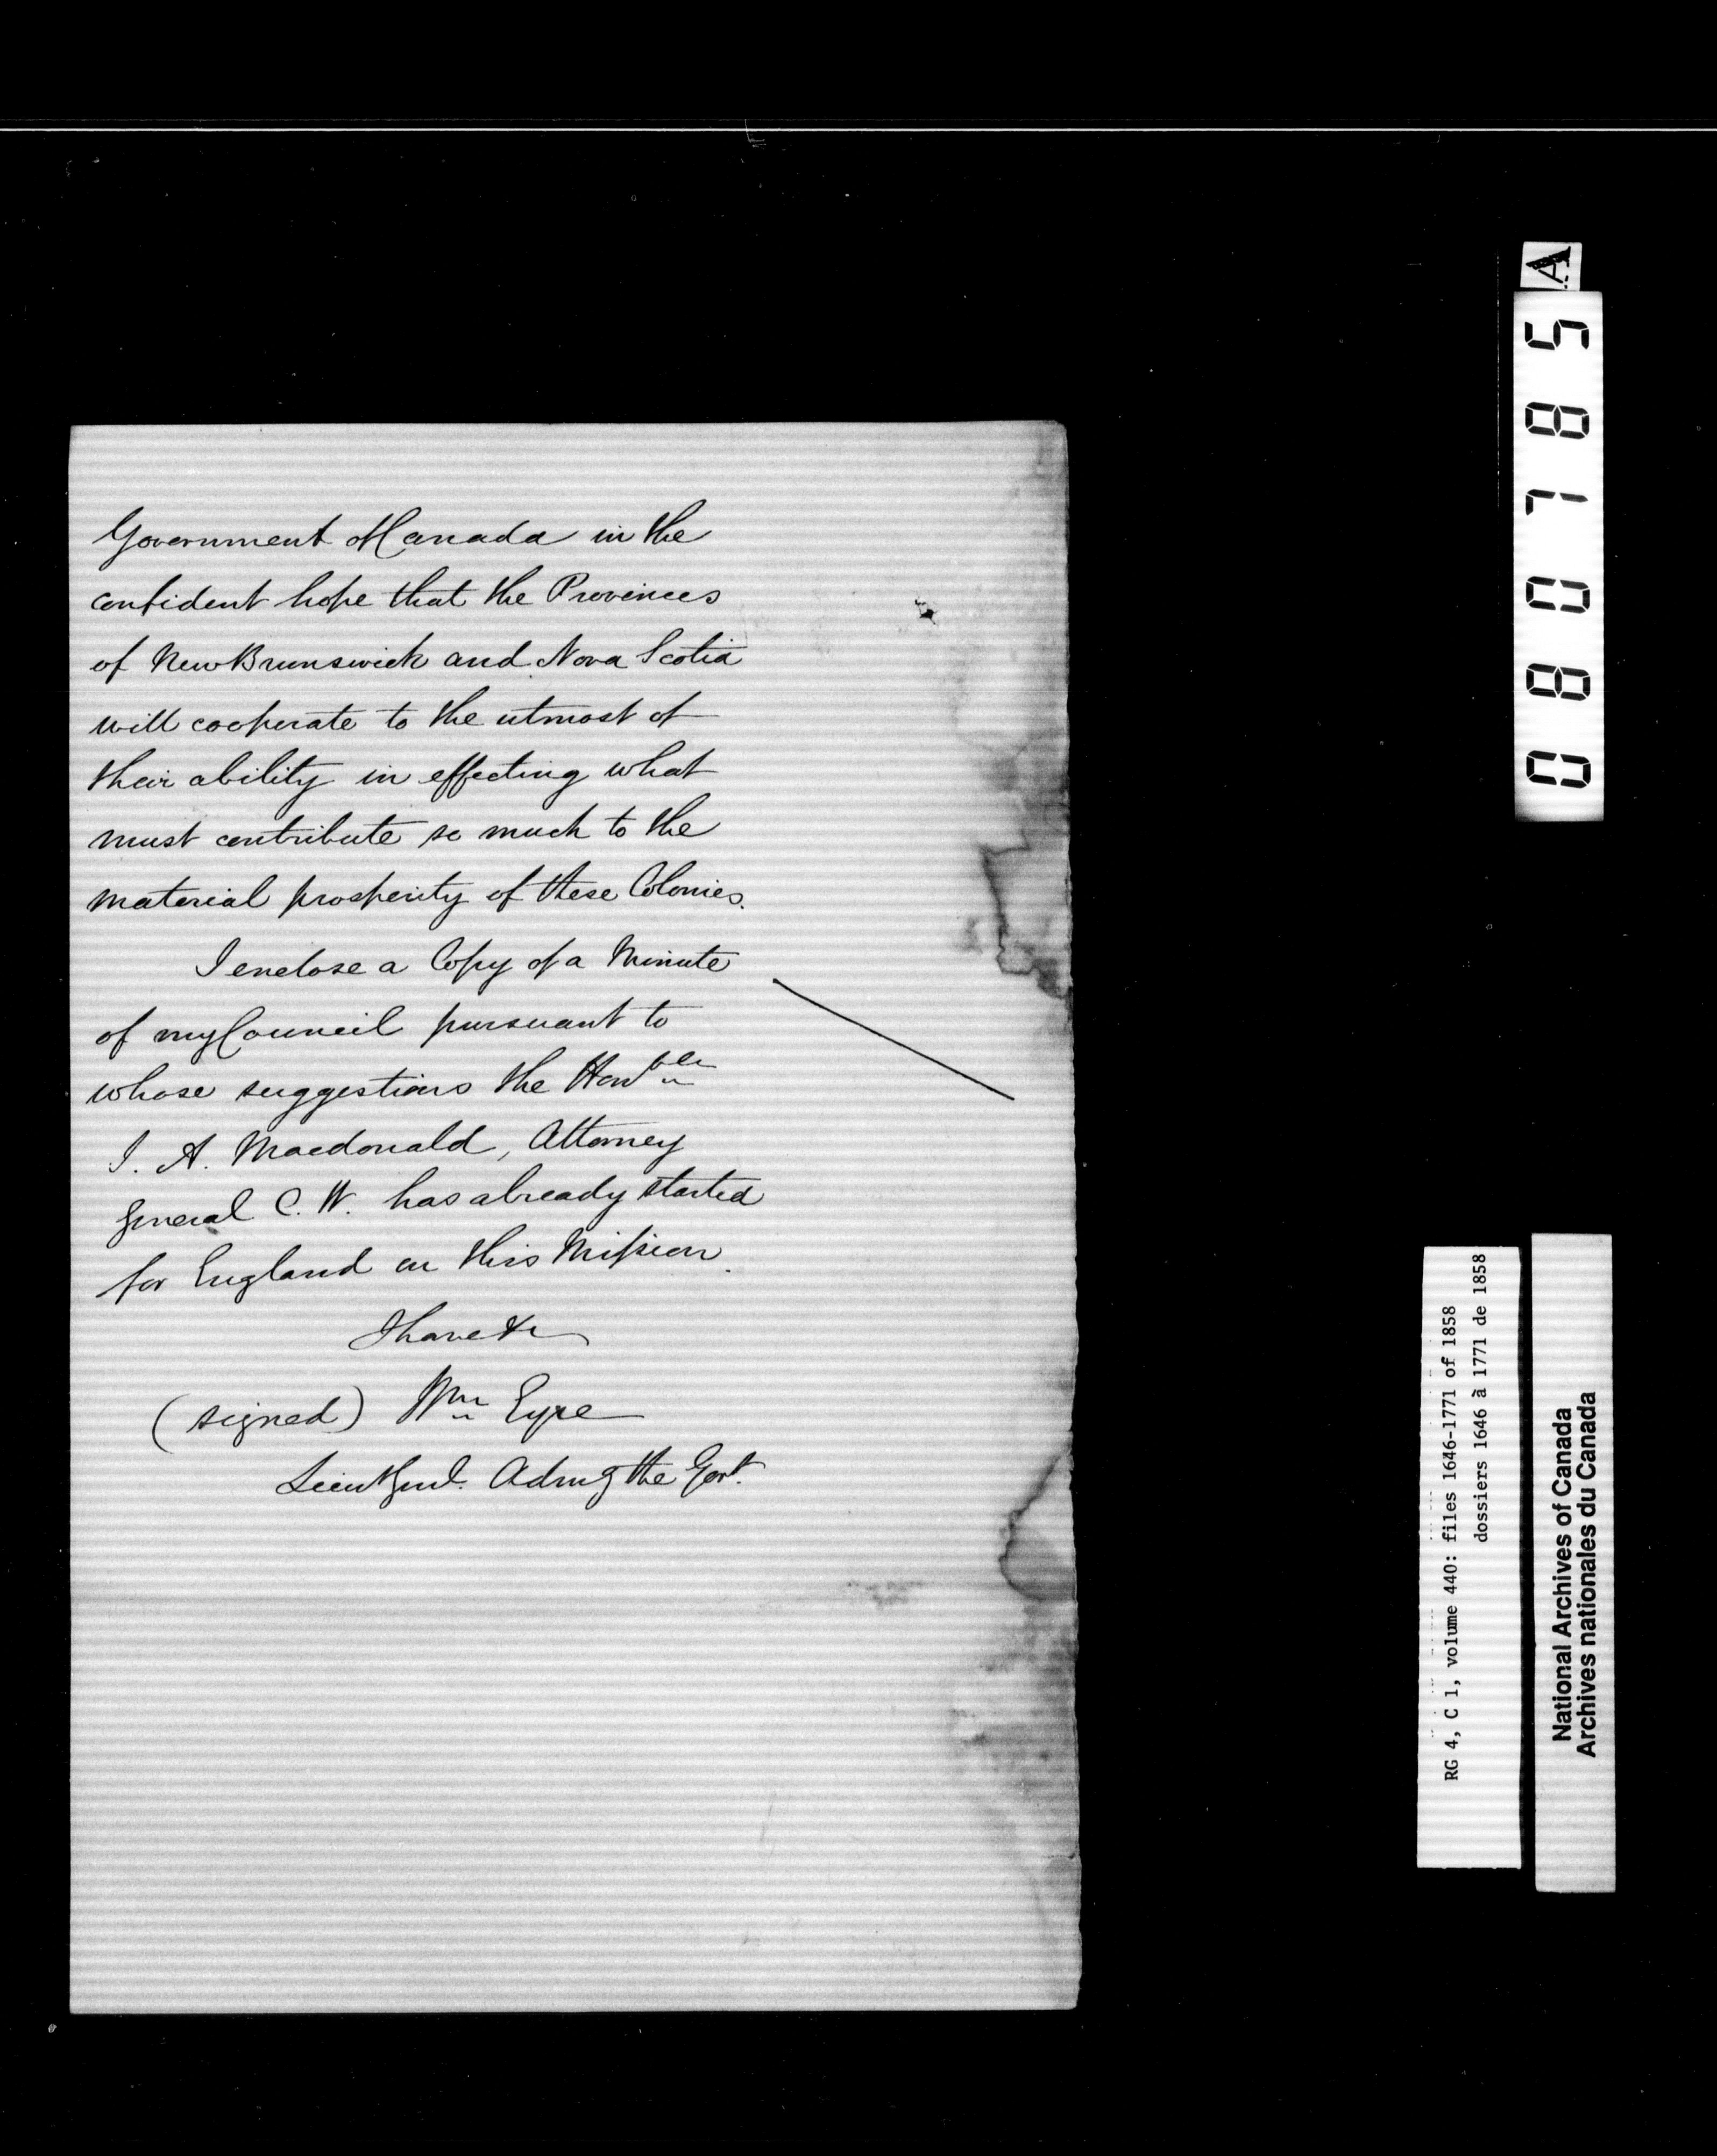 Government of Canada in the
confident hope that the Provinces
of New Brunswick and Nova Scotia
will cooperate to the utmost of
their ability in effecting what
must contribute so much to the
material prosperity of these Colonies.
I enclose a Copy of a Minute
of my Council pursuant to
whose suggestions the Honble
J. A. Macdonald, Attorney
General C. W. has already started
for England on this Mission.
I have &c
(signed) Wm Eyre
Lieut Genl. Admg the Govt.
A
080785
RG 4, C 1, volume 440: files 1646-1771 of 1858
dossiers 1646 à 1771 de 1858
National Archives of Canada
Archives nationales du Canada